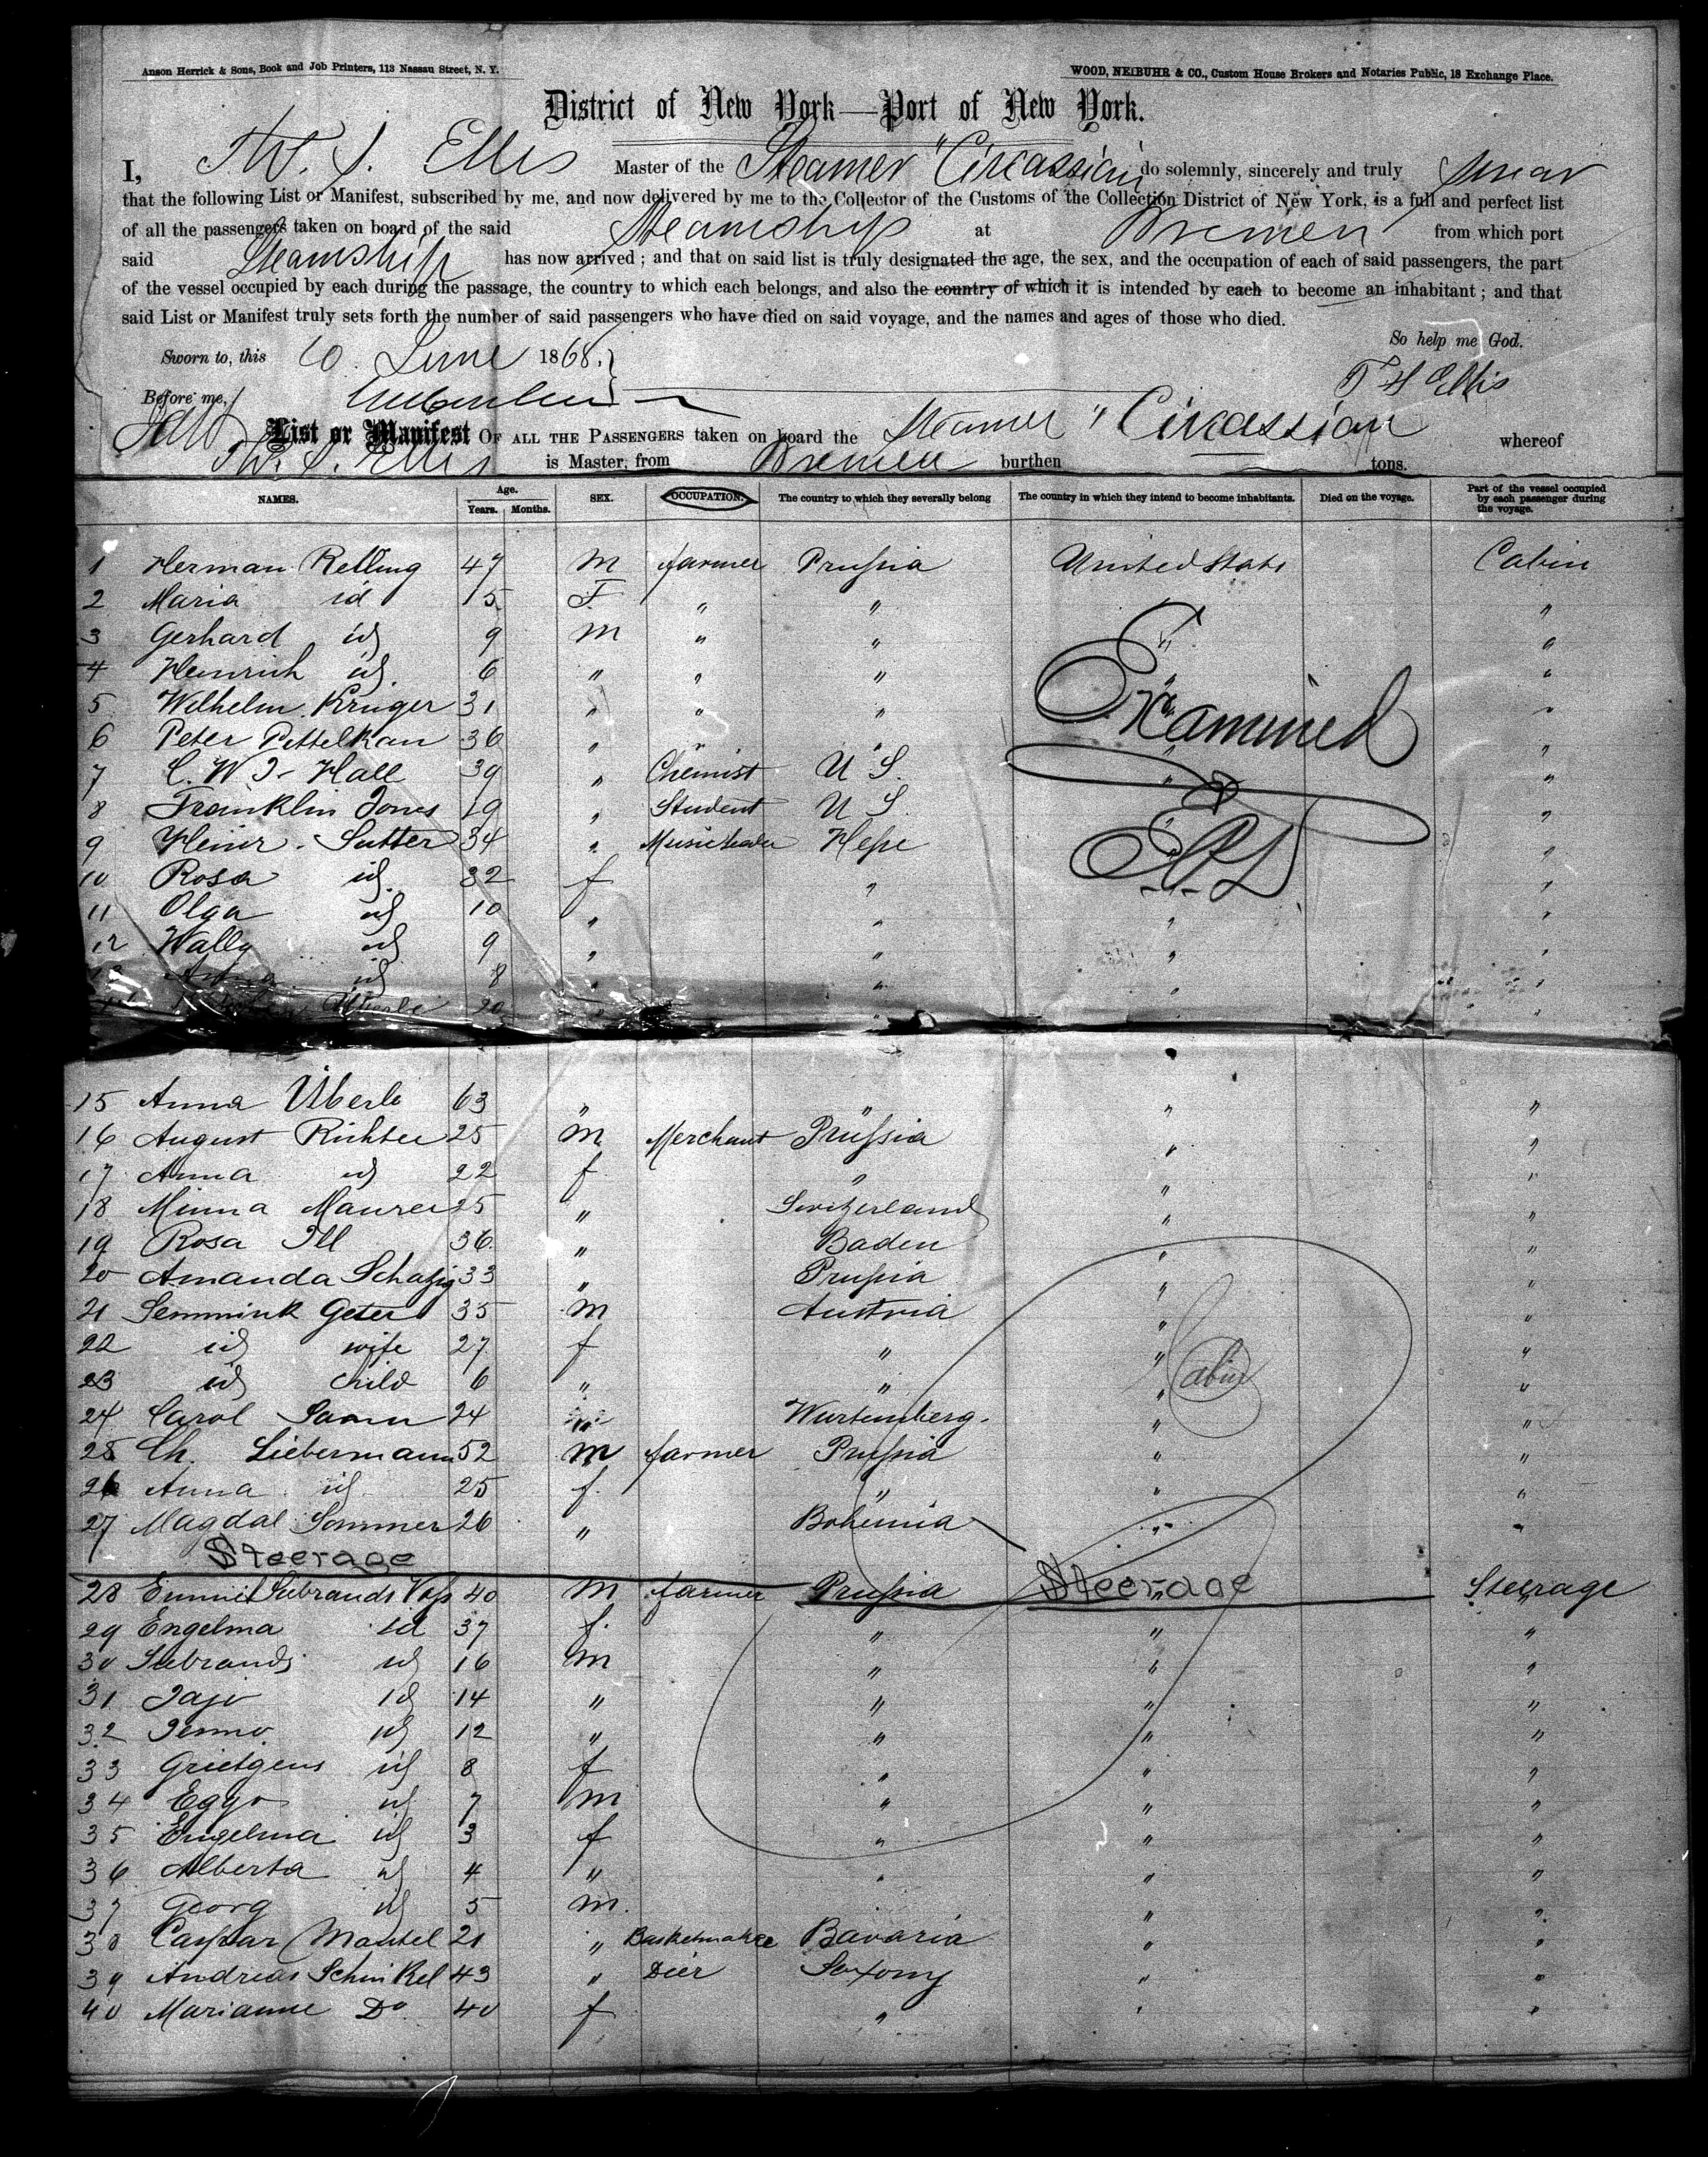 Anson Herrick & Sons, Book and Job Printers, 113 Nassau Street, N. Y.
WOOD, NEIBUHR & CO., Custom House Brokers and Notaries Public, 18 Exchange Place.
District of New York—Port of New York.
I, Ellis Master of the Steamer "Circassian do solemnly, sincerely and truly swear
that the following List or Manifest, subscribed by me, and now delivered by me to the Collector of the Customs of the Collection District of New York, is a full and perfect list
of all the passengers taken on board of the said Steamship at Bremen from which port
said Steamship has now arrived; and that on said list is truly designated the age, the sex, and the occupation of each of said passengers, the part
of the vessel occupied by each during the passage, the country to which each belongs, and also the country of which it is intended by each to become an inhabitant; and that
said List or Manifest truly sets forth the number of said passengers who have died on said voyage, and the names and ages of those who died.
So help me God.
Sworn to, this 10 June 1868.
T S Ellis
Before me,
List or Manifest OF ALL THE PASSENGERS taken on board the Steamer "Circassian whereof
Ellis is Master, from Bremen burthen tons.
NAMES. Age. Years. Months. SEX. OCCUPATION. The country to which they severally belong The country in which they intend to become inhabitants. Died on the voyage. Part of the vessel occupied by each passenger during the voyage.
1 Herman Relling 47 M farmer Prussia United States Cabin
2 Maria id 15 F " " "
3 Gerhard id 9 M " " " "
4 Heinrich id. 6 " " " "
5 Wilhelm Krüger 31 " " " " "
6 Peter Pittelkau 36 " " " "
7 C. W. Hall 39 " Chemist U S. " "
8 Franklin Jones 19 " Student U S. "
9 Heinr. Sutter 34 " Musicteacher Hesse " "
10 Rosa id. 32 f " "
11 Olga id 10 " " " "
12 Wally id 9 " " " "
Anna id 8 " " " "
20 " "
Examined
15 Anna Überle 63 " " " "
16 August Richter 25 M Merchant Prussia " "
17 Anna id 22 f " " "
18 Minna Maurer 25 " Switzerland " "
19 Rosa Ill 36 " Baden " "
20 Amanda Schatzig 33 " Prussia " "
21 Semmink Geter 35 M Austria " "
22 id wife 27 f " " "
23 id child 6 " " " "
Cabin
24 Carol Saam 24 " Wurtemberg. " "
25 Ch. Liebermann 52 M farmer Prussia " "
26 Anna id 25 f. " " "
27 Magdal Sommer 26 " Bohemia " "
Steerage
28 Siebrands Voss 40 M farmer Prussia Steerage " Steerage
29 Engelma id 37 f. " " "
30 Siebrands id 16 M " " "
31 id 14 " " " "
32 id 12 " " " "
33 Grietgens id 8 f " " "
34 Eggo id 7 M " " "
35 Engelma id 3 f " " "
36 Alberta id 4 " " " "
37 Georg id 5 M. " "
38 Caspar Mantel 21 " Basketmaker Bavaria " "
39 Andreas Schinkel 43 " Dier Saxony " "
40 Marianne Do 40 f " " "